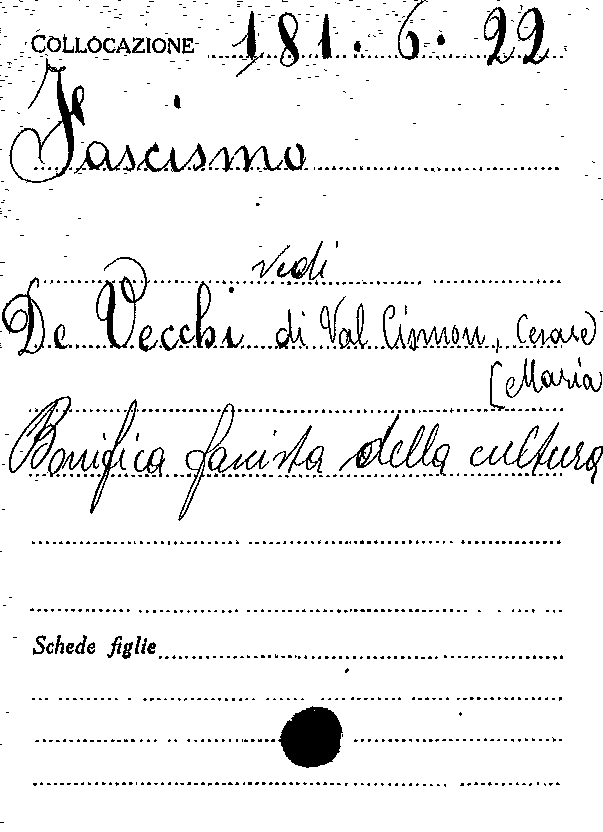 COLLOCAZIONE 181.6.22
Fascismo
vedi
De Vecchi di Val Cismon, Cesare
[Maria
Bonifica fascista della cultura
Schede figlie